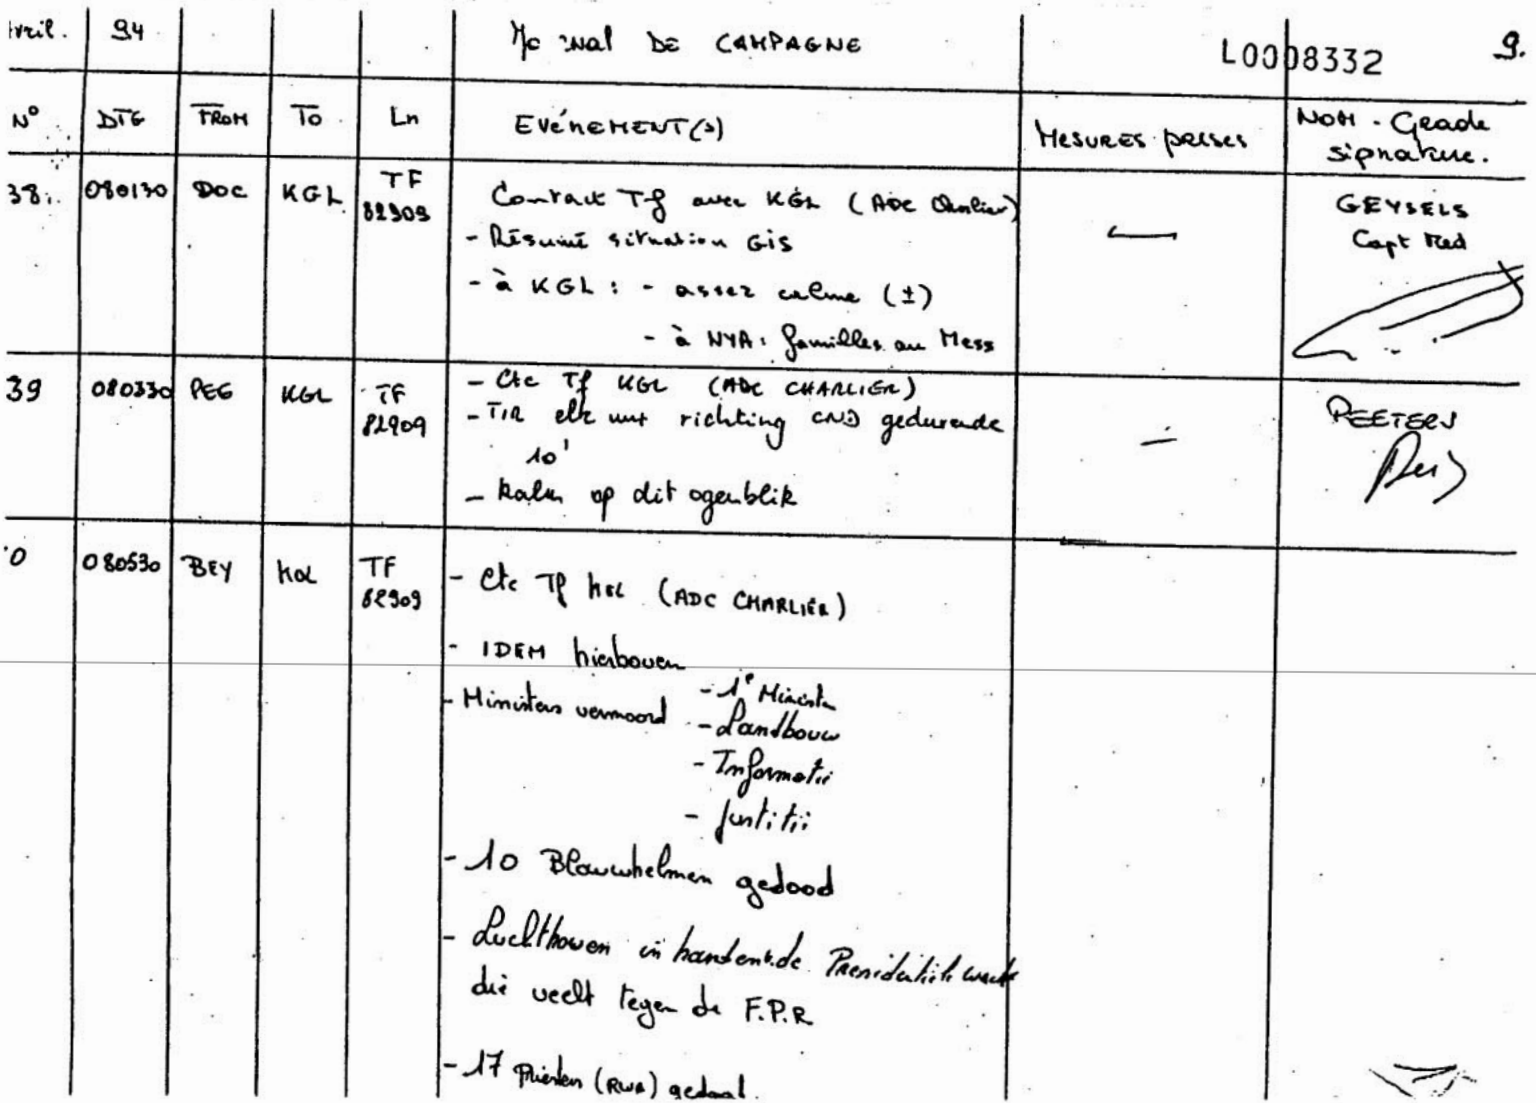 94 JOURNAL DE CAMPAGNE L0008332 9.
N° DTG FROM TO Ln EVÉNEMENT(s) MESURES PRISES NOM - Grade
signature.
38. 080130 DOC KGL TF 82909 Contact Tf avec KGL (ADC Charlier) GEYSELS
- Résumé situation GIS Capt Med
- à KGL : - assez calme (±)
- à NYA : familles au Mess
39 080330 PEG KGL TF 82909 - Ctc Tf KGL (ADC CHARLIER) PEETERS
- TIR elk uur richting CND gedurende
10'
- kalm op dit ogenblik
080530 BEY KGL TF 82909 - Ctc Tf KGL (ADC CHARLIER)
- IDEM hierboven
- Ministers vermoord - 1e Minister
- Landbouw
- Informatie
- Justitie
- 10 Blauwhelmen gedood
- Luchthaven in handen v. de Presidentiële wacht
die vecht tegen de F.P.R
- 17 Priesters (RWA) gedood.